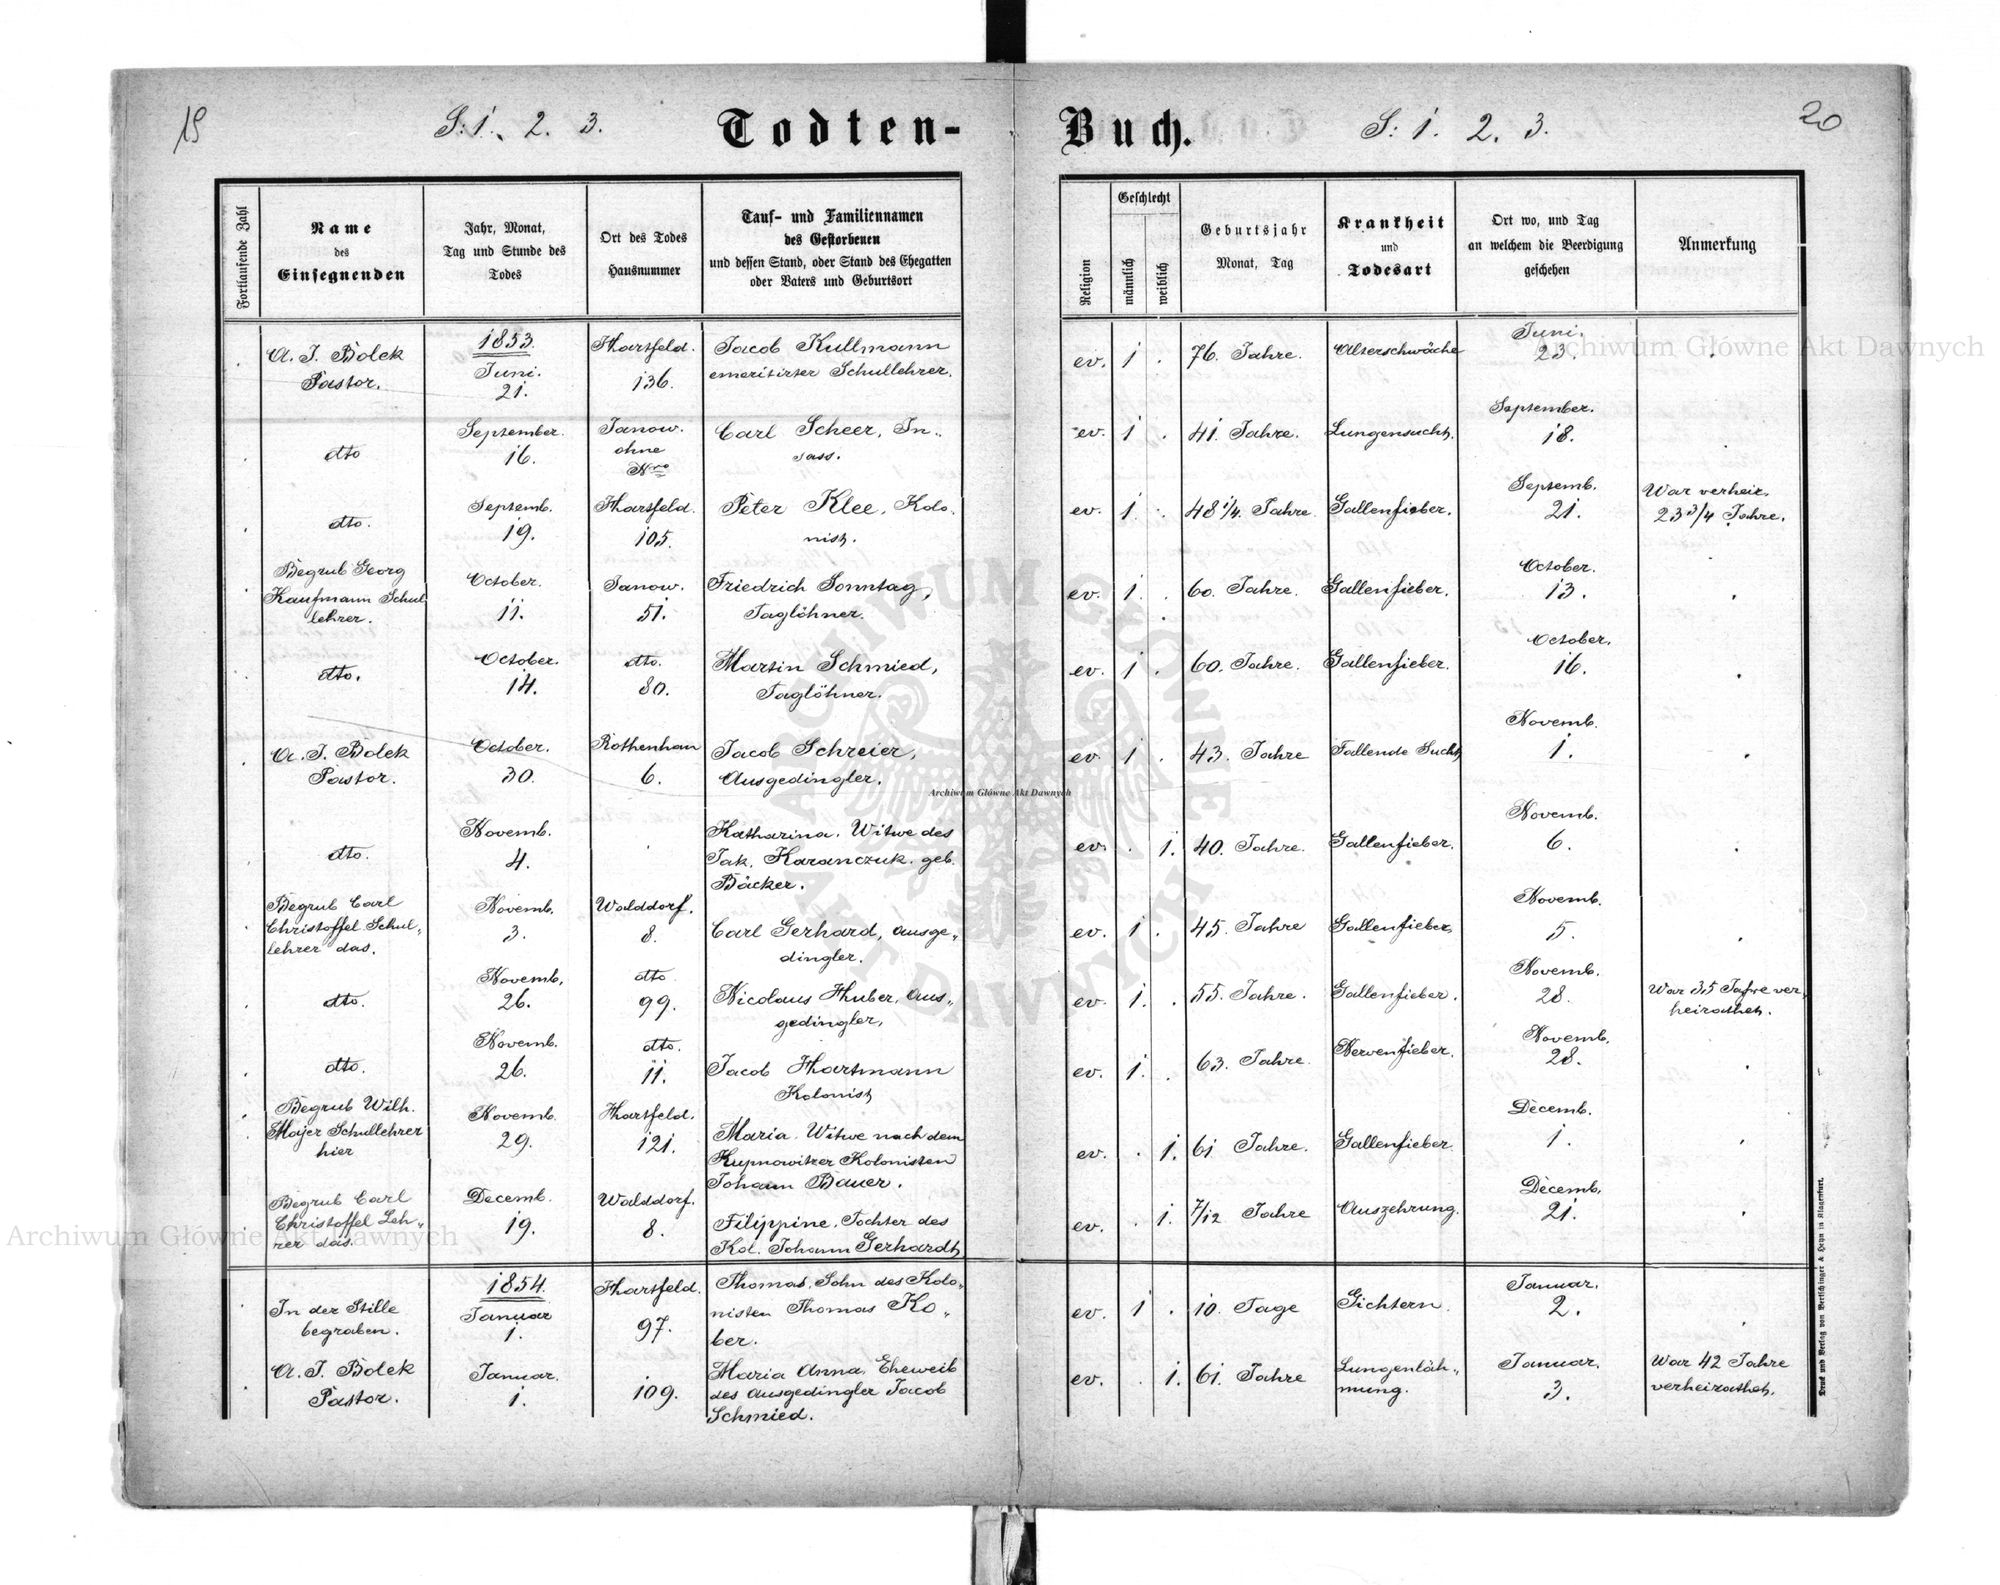 19
S: 1. 2. 3.
Todten-
Buch.
S: 1. 2. 3.
20
Fortlaufende Zahl
Name
des
Einsegnenden
Jahr, Monat,
Tag und Stunde des
Todes
Ort des Todes
Hausnummer
Tauf- und Familiennamen
des Gestorbenen
und dessen Stand, oder Stand des Ehegatten
oder Vaters und Geburtsort
Religion
Geschlecht
männlich
weiblich
Geburtsjahr
Monat, Tag
Krankheit
und
Todesart
Ort wo, und Tag
an welchem die Beerdigung
geschehen
Anmerkung
A. J. Bolek
Pastor.
1853.
Juni.
21.
Hartfeld.
136.
Jacob Kullmann
emeritirter Schullehrer.
ev. 1 . 76. Jahre. Alterschwäche
Juni.
23.
dto
September.
16.
Janow.
ohne
Nro
Carl Scheer, In„
sass.
ev. 1 . 41. Jahre. Lungensucht.
September.
18.
dto.
Septemb.
19.
Hartfeld.
105.
Peter Klee, Kolo.
nist.
ev. 1. . 48 1/4. Jahre Gallenfieber.
Septemb.
21.
War verheir.
23 3/4 Jahre.
Begrub Georg
Kaufmann Schul
lehrer.
October.
11.
Janow.
51.
Friedrich Sonntag,
Taglöhner.
ev. 1. . 60. Jahre. Gallenfieber.
October.
13.
dto.
October.
14.
dto.
80.
Martin Schmied,
Taglöhner.
ev. 1 . 60. Jahre. Gallenfieber.
October.
16.
A. J. Bolek
Pastor.
October.
30.
Rothenhan
6.
Jacob Schreier,
Ausgedingler.
ev. 1 . 43. Jahre Fallende Sucht
Novemb.
1.
dto.
Novemb.
4.
Katharina. Witwe des
Jak. Karanczuk. geb.
Bäcker.
ev. . 1. 40. Jahre. Gallenfieber.
Novemb.
6.
Begrub Carl
Christoffel Schul„
lehrer das.
Novemb.
3.
Walddorf.
8.
Carl Gerhard, Ausge„
dingler.
ev. 1 . 45. Jahre Gallenfieber.
Novemb.
5.
dto.
Novemb.
26.
dto
99.
Nicolaus Huber, Aus„
gedingler,
ev. 1. . 55. Jahre. Gallenfieber.
Novemb.
28.
War 35 Jahre ver„
heirathet.
dto.
Novemb.
26.
dto.
11.
Jacob Hartmann
Kolonist
ev. 1. . 63. Jahre. Nervenfieber.
Novemb.
28.
Begrub Wilh.
Majer Schullehrer
hier
Novemb.
29.
Hartfeld.
121.
Maria. Witwe nach dem
Kupnowitzer Kolonisten
Johann Bauer.
ev. . 1. 61 Jahre. Gallenfieber
Decemb.
1.
Begrub Carl
Christoffel Leh„
rer das.
Decemb.
19.
Walddorf.
8.
Filippine. Tochter des
Kol. Johann Gerhardt
ev. . 1. 7/12 Jahre Auszehrung.
Decemb.
21.
In der Stille
begraben.
1854.
Januar
1.
Hartfeld.
97.
Thomas. Sohn des Kolo„
nisten Thomas Ko„
ber.
ev. 1 . 10. Tage Gichtern.
Januar.
2.
A. J. Bolek
Pastor.
Januar.
1.
109.
Maria Anna. Eheweib
des Ausgedingler Jacob
Schmied.
ev. . 1. 61. Jahre Lungenläh„
mung.
Januar.
3.
War 42 Jahre
verheirathet.
Druck und Verlag von Bertschinger & Heyn in Klagenfurt.
Archiwum Główne Akt Dawnych
Archiwum Główne Akt Dawnych
Archiwum Główne Akt Dawnych
ARCHIWUM GŁÓWNE
AKT DAWNYCH